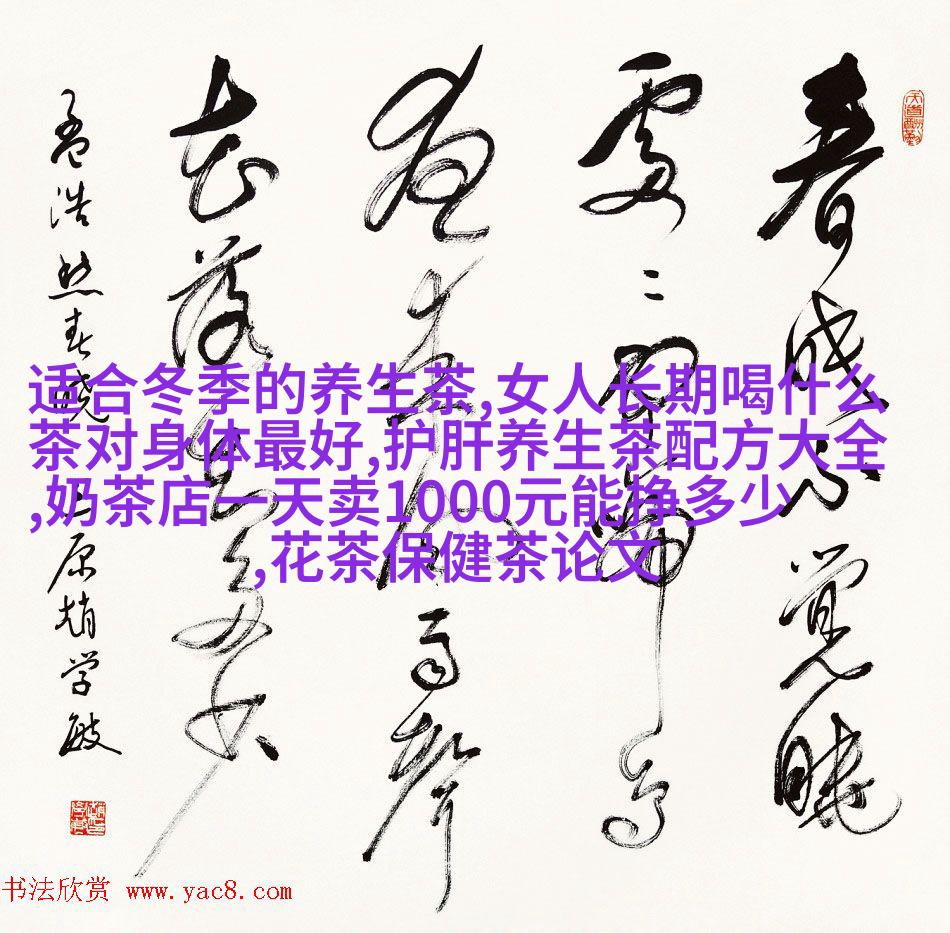 春眠不覺曉
處々聞啼鳥
夜来風雨聲
花落知多少
孟浩然春晓 太原赵学敏
天道酬勤
适合冬季的养生茶,女人长期喝什么
茶对身体最好,护肝养生茶配方大全
,奶茶店一天卖1000元能挣多少
,花茶保健茶论文
书法欣赏 www.yac8.com